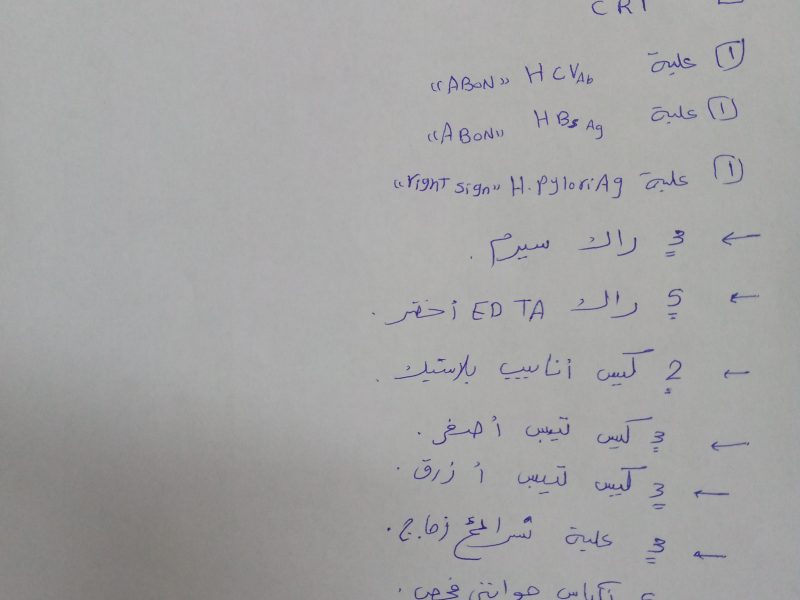 CRP
① علبة HCV Ab "ABON"
① علبة HBs Ag "ABON"
① علبة H.pylori Ag "right sign"
← 3 راك سيرم .
← 5 راك EDTA أخضر .
← 2 كيس أنابيب بلاستيك .
← 3 كيس تيبس أصفر .
← 3 كيس تيبس أزرق .
← 3 علبة شرائح زجاج .
أكياس جوانتي فحص .